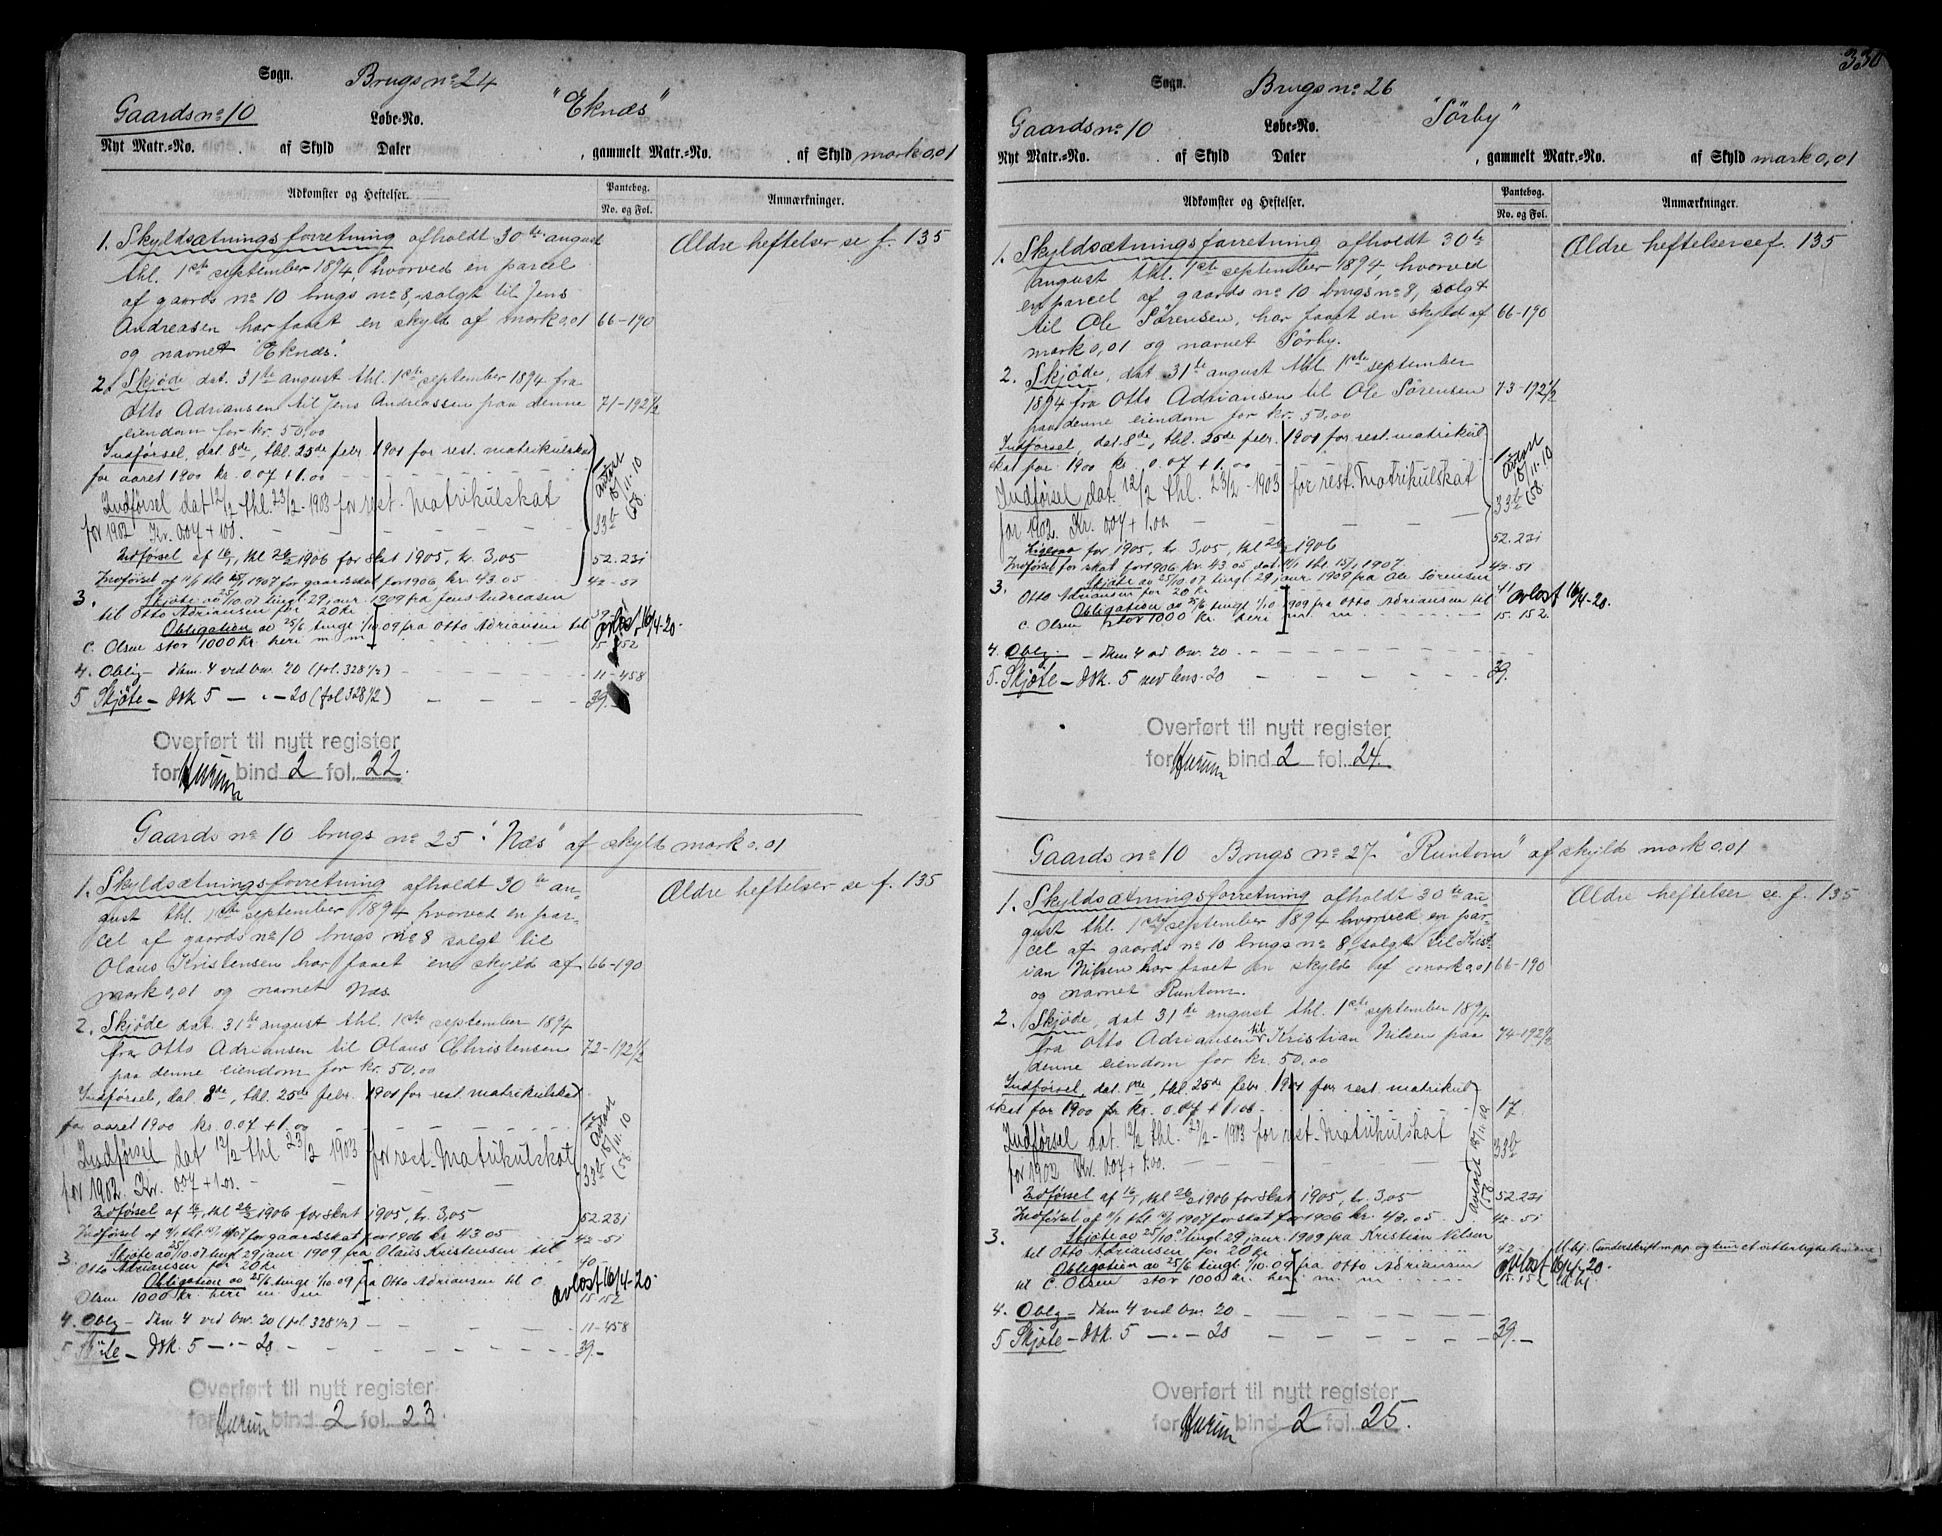 Sogn. Brugs no 24
"Eknæs"
Gaards no 10 Løbe-No.
Nyt Matr.-No. af Skyld Daler , gammelt Matr.-No. . af Skyld mark 0,01
Adkomster og Heftelser. Pantebog. No. og Fol. Anmærkninger.
1. Skyldsætningsforretning afholdt 30te august Ældre heftelser se f. 135
thl. 1ste september 1894, hvorved en parcel
af gaards no 10 brugs no 8, solgt til Jens
Andreasen har faaet en skyld af mark 0,01 66-190
og navnet "Eknæs".
2. Skjøde dat. 31te august thl. 1ste september 1894 fra
Otto Adriansen til Jens Andreassen paa denne 71-192 1/2
eiendom for kr. 50,00
Indførsel, dat. 8de, thl. 25de febr. 1901 for rest. matrikulskat
for aaret 1900 kr. 0.07 + 1.00 - - - 17
Indførsel dat 12/2 thl. 23/2 - 1903 for rest. Matrikulskat
for 1902 Kr. 0,07 + 1.00. - - - 33b
Avløst 18/11.10 (58.
Indførsel af 16/1, thl 26/2 1906 for skat 1905, kr. 3,05 52.231
Indførsel af 11/1 thl 15/1 1907 for gaardskat for 1906 kr. 43.05 42-51
3. Skjøte av 25/10.07 tingl. 29 janr. 1909 fra Jens Andreasen
til Otto Adriansen for 20 kr. 39
Obligation av 25/6 tingl 1/10.09 fra Otto Adriansen til avløst 16/4-20.
C. Olsen stor 1000 kr. heri m m 15-152
4. Oblig - dkm. 4 ved bnr. 20 (fol. 328 1/2) - - - 11-458
5 Skjøte - dsk 5 - " - 20 (fol 328 1/2) - - - 39.-
Overført til nytt register
for Hurum bind 2 fol. 22.
Gaards no 10 brugs no 25 "Næs" af skyld mark 0,01
1. Skyldsætningsforretning afholdt 30te au- Ældre heftelser se f. 135
gust thl. 1ste september 1894 hvorved en par-
cel af gaards no 10 brugs no 8 solgt til
Olaus Kristensen har faaet en skyld af 66-190
mark 0,01 og navnet Næs
2. Skjøde dat. 31te august thl. 1ste september 1894
fra Otto Adriansen til Olaus Christensen 72-192 1/2
paa denne eiendom for kr. 50,00
Indførsel, dal. 8de, thl. 25de febr. 1901 for rest. matrikulskat
for aaret 1900 kr. 0.07 + 1.00 - - - 17
Indførsel dat 12/2 thl 23/2 1903 for rest. Matrikulskat
for 1902. Kr. 0,07 + 1.00. - - - 33b
Avløst 18/11.10 (58
Indførsel af 16/1, thl 26/2 1906 for skat 1905, kr. 3,05 52.231
Indførsel af 11/1 thl 15/1 1907 for gaardskat for 1906 kr 43.05 42-51
3. Skjøte av 25/10.07 tingl 29 janr 1909 fra Olaus Kristensen til
Otto Adriansen for 20 kr 40
Obligation av 25/6 tingl 1/10.09 fra Otto Adriansen til C. avløst 16/4-20.
Olsen 1000 kr. heri m m 15 152
4. Oblg - dkm 4 ved bnr. 20 (fol 328 1/2) - - - 11-458
5 Skjøte - dsk. 5 - " - 20 - - - 39.-
Overført til nytt register
for Hurum bind 2 fol. 23.
330
Sogn. Brugs no 26
"Sörby"
Gaards no 10 Løbe-No.
Nyt Matr.-No. af Skyld Daler , gammelt Matr.-No. . af Skyld mark 0,01
Adkomster og Heftelser. Pantebog. No. og Fol. Anmærkninger.
1. Skyldsætningsforretning afholdt 30te Ældre heftelser se f. 135
august thl. 1ste september 1894, hvorved
en parcel af gaards no 10 brugs no 8, solgt
til Ole Sørensen, har faaet en skyld af 66-190
mark 0,01 og navnet Sörby.
2. Skjøde, dat. 31te august thl. 1ste september
1894 fra Otto Adriansen til Ole Sørensen 73-192 1/2
paa denne eiendom for kr. 50,00
Indførsel, dat. 8de, thl. 25de febr. 1901 for rest. matrikul
skat for 1900 kr. 0.07 + 1.00 - - - 17
Indførsel dat 12/2 thl. 23/2 - 1903 for rest. Matrikulskat
for 1902. Kr. 0,07 + 1.00 - - - 33b
Avløst 18/11.10 (58.
Ligesaa for 1905, kr. 3,05, thl 26/2 1906 52.231
Indførsel for skat for 1906 kr. 43 05 dat. 11/1 thl. 15/1 1907. 42-51
3. Skjøte av 25/10.07 tingl. 29 janr. 1909 fra Ole Sørensen
Otto Adriansen for 20 kr 41
Obligation av 25/6 tingl 1/10 1909 fra Otto Adriansen til avløst 16/4-20.
C. Olsen stor 1000 kr. heri m m 15. 152.
4. Oblg. - dkm 4 ved bnr. 20 - - -
5. Skjøte - dsk. 5 ved bnr. 20 - - - 39.
Overført til nytt register
for Hurum bind 2 fol. 24.
Gaards no 10 Brugs no 27 "Runtom" af skyld mark 0,01
1. Skyldsætningsforretning afholdt 30te au- Ældre heftelser se f. 135
gust thl. 1ste september 1894 hvorved en par-
cel af gaards no 10 brugs no 8, solgt til Krist-
ian Nilsen har faaet en skyld af mark 0,01 66-190
og navnet Runtom.
2. Skjøde, dat 31te august thl. 1ste september 1894.
fra Otto Adriansen til Kristian Nilsen paa 74-192 1/2
denne eiendom for kr. 50,00
Indførsel, dat. 8de, thl. 25de febr. 1901 for rest. matrikul
skat for 1900 kr. 0.07 + 1.00 - - - 17
Indførsel dat. 12/2 thl. 23/2 - 1903 for rest. Matrikulskat
for 1902 Kr. 0,07 + 1.00. - - - 33b
avløst 18/11.10 (58
Indførsel af 16/1, thl 26/2 1906 for skat 1905, kr. 3,05 52.231
Indførsel af 11/1 thl 15/1 1907 for skat for 1906 kr. 43,05 42-51
3. Skjøte av 25/10 07 tingl 29 janr. 1909 fra Kristian Nilsen
til Otto Adriansen for 20 kr 42
Obligation av 25/6 tingl 1/10.09 fra Otto Adriansen avløst 16/4-20.
til C. Olsen stor 1000 kr. heri m m 15. 152
4. Oblg - dkm 4 ved bnr. 20 - - -
5 Skjøte - dsk. 5 - " - 20 - - - 39.-
Overført til nytt register
for Hurum bind 2 fol 25.